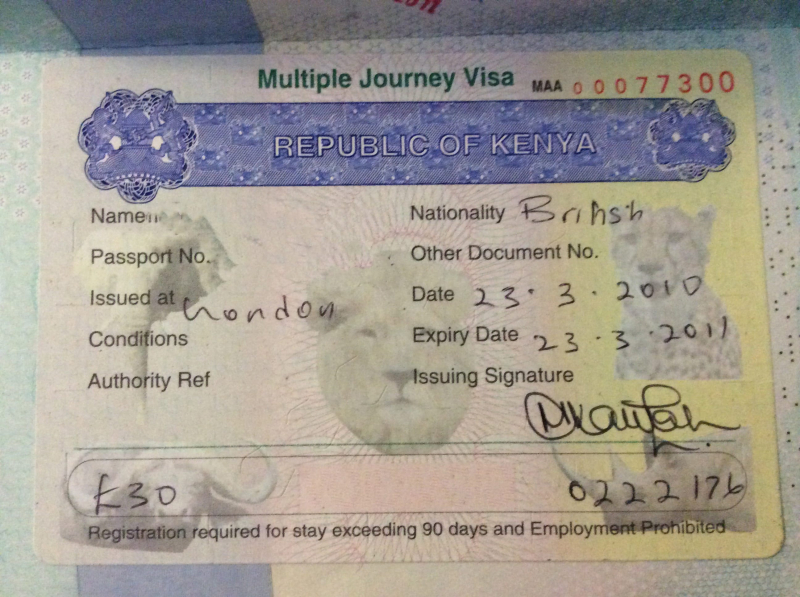 Multiple Journey Visa MAA 00077300
REPUBLIC OF KENYA
Name Nationality British
Passport No. Other Document No.
Issued at London Date 23.3.2010
Conditions Expiry Date 23.3.2011
Authority Ref Issuing Signature
£30 0222176
Registration required for stay exceeding 90 days and Employment Prohibited